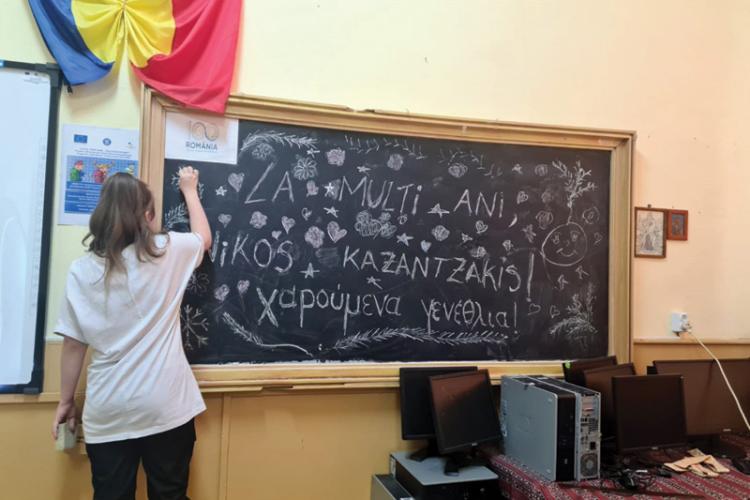 100
ROMÂNIA
LA MULTI ANI,
NIKOS KAZANTZAKIS!
χαρούμενα γενέθλια!